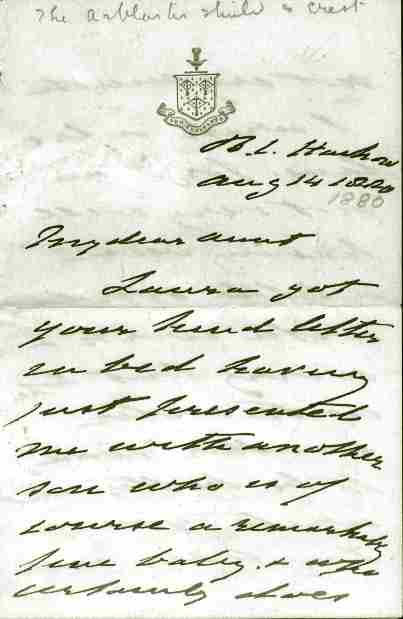 The Arblaster shield & crest
Aug 14 1880
1880
My dear aunt
Laura got
your kind letter
in bed having
just presented
me with another
son who is of
course a remarkably
fine baby & who
certainly does